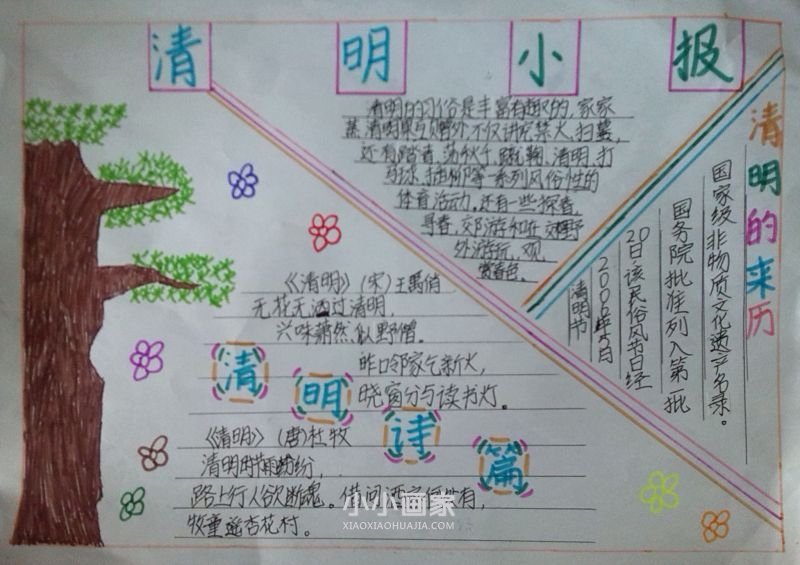 清明小报
清明的习俗是丰富有趣的,家家
蒸清明果互赠外,不仅讲究禁火、扫墓,
还有踏青、荡秋千、蹴鞠、清明、打
马球、插柳等一系列风俗性的
体育活动,还有一些探春,
寻春,郊游和在郊野
外游玩,观
赏春色。
清明的来历
清明节
2006年5月
20日该民俗风节日经
国务院批准列入第一批
国家级非物质文化遗产名录。
《清明》(宋)王禹偁
无花无酒过清明,
兴味萧然似野僧。
昨日邻家乞新火,
晓窗分与读书灯。
清明诗篇
《清明》(唐)杜牧
清明时雨纷纷,
路上行人欲断魂。借问酒家何处有,
牧童遥杏花村。
小小画家
XIAOXIAOHUAJIA.COM